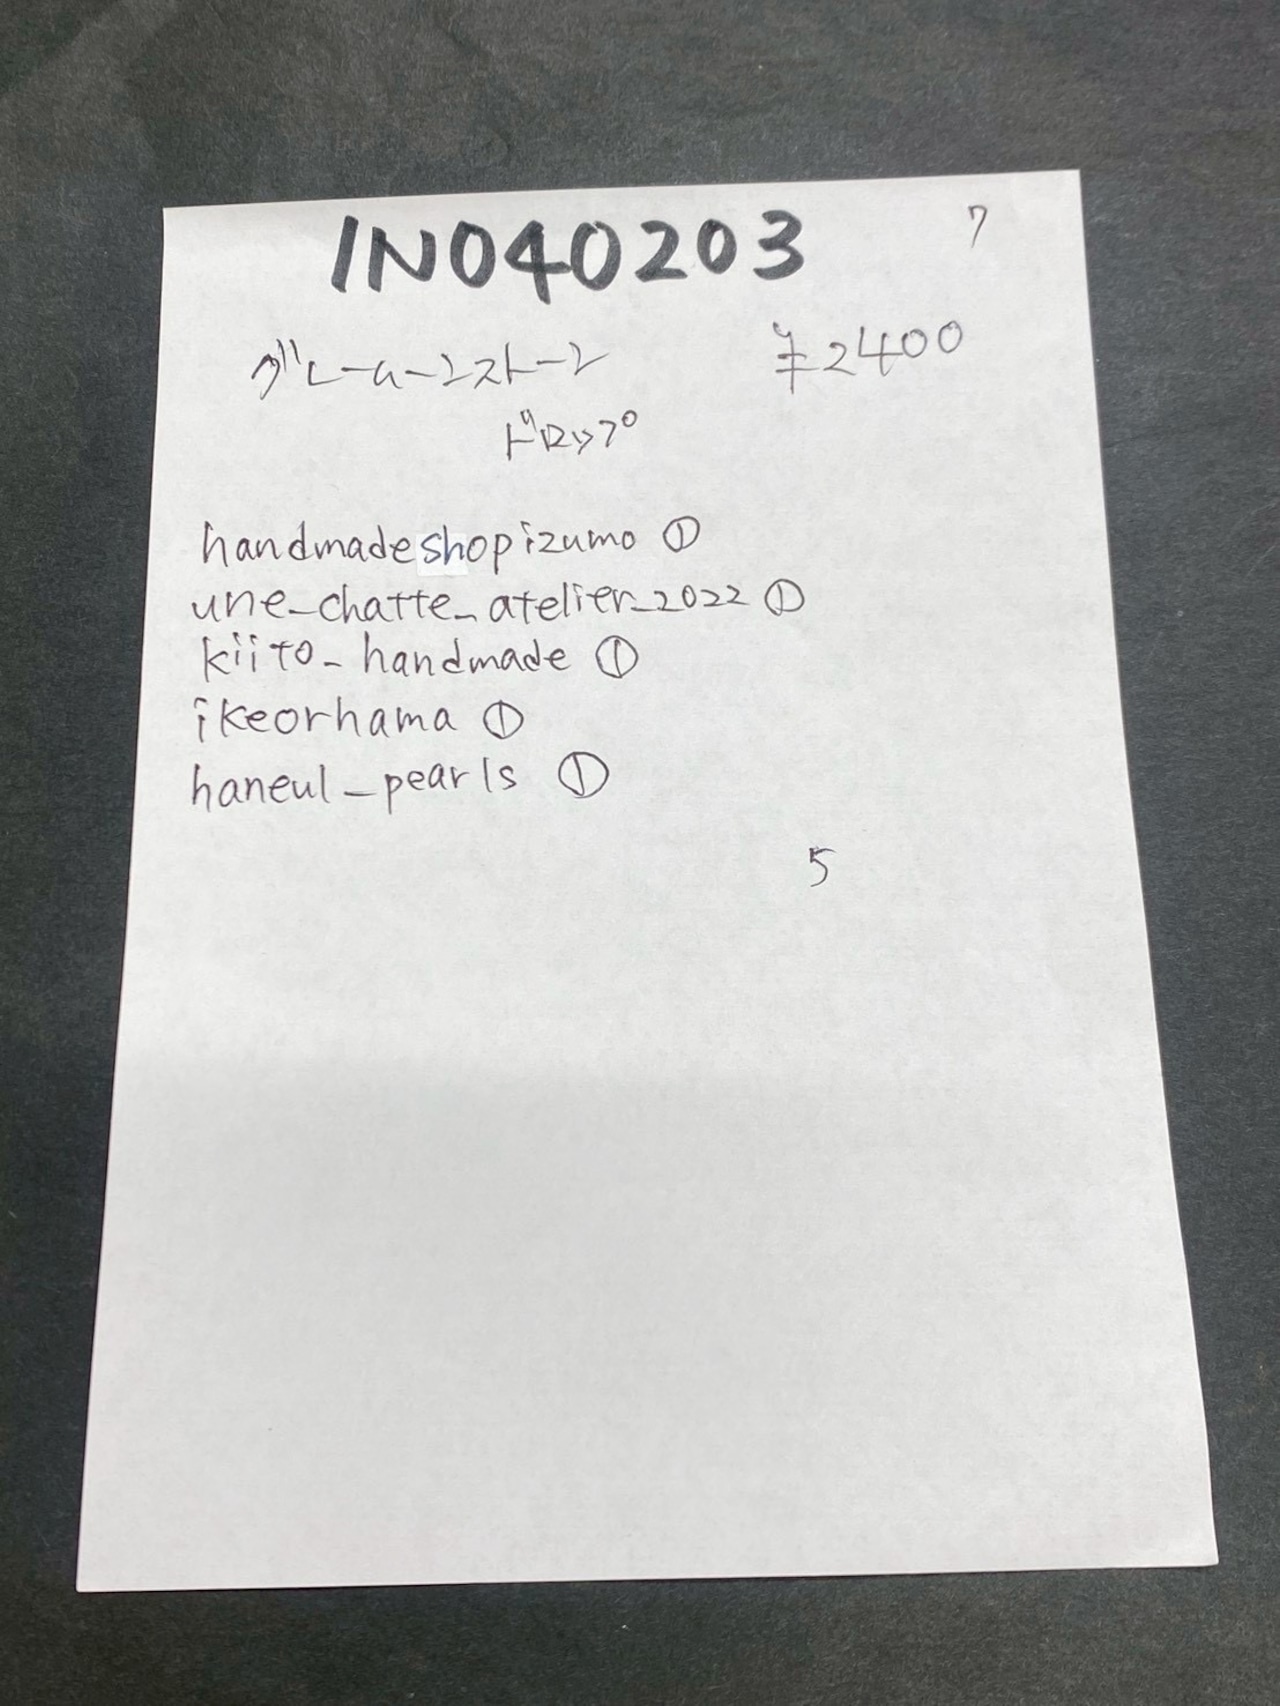 IN040203 7
グレームーンストーン ¥2400
ドロップ
handmadeshopizumo ①
une_chatte_atelier_2022 ①
kiito_handmade ①
ikeorhama ①
haneul_pearls ①
5